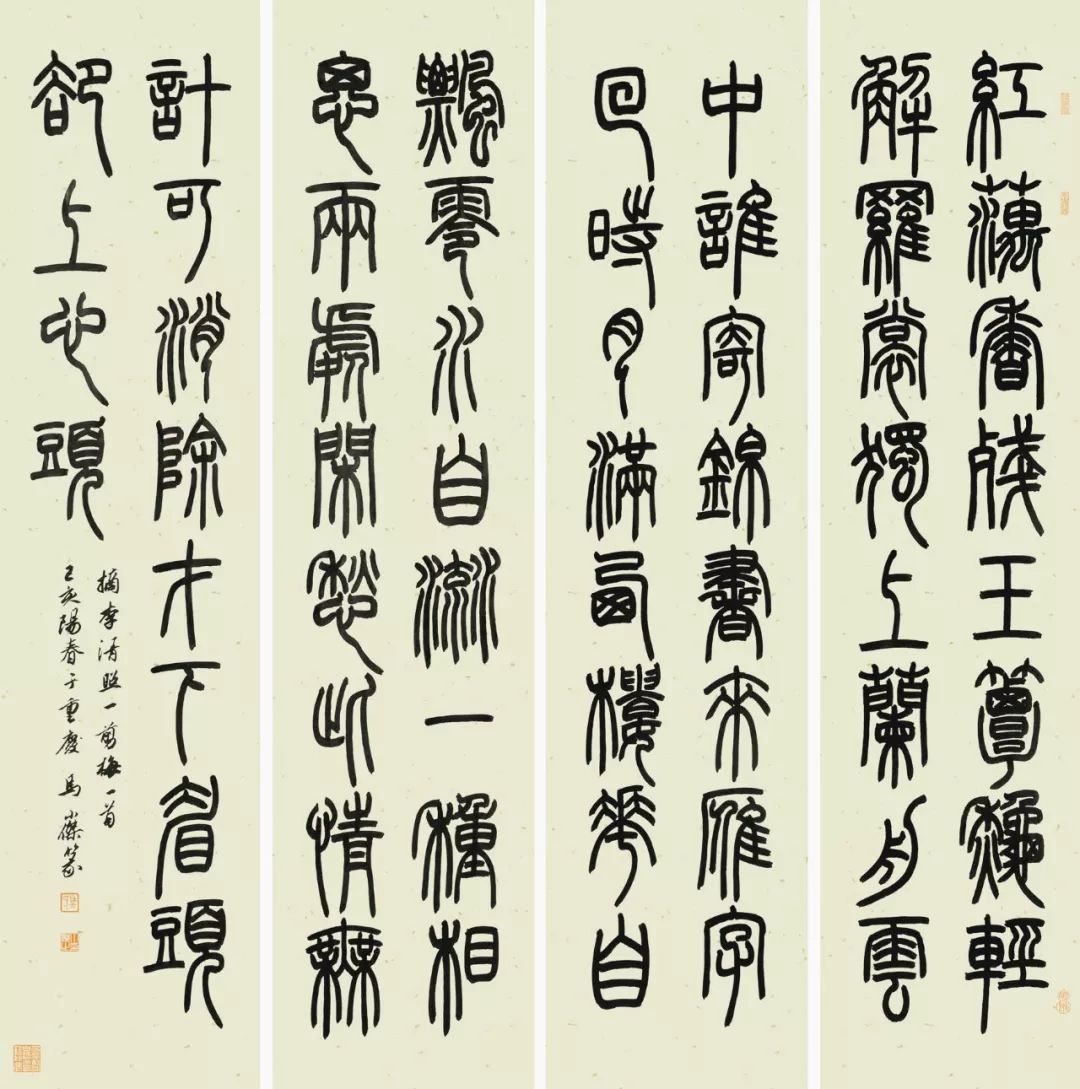 紅藕香殘玉簟秋輕
解羅裳獨上蘭舟雲
中誰寄錦書來雁字
回時月滿西樓花自
飄零水自流一種相
思兩處閑愁此情無
計可消除才下眉頭
卻上心頭
摘李清照一剪梅一首
己亥陽春于重慶 馬 篆